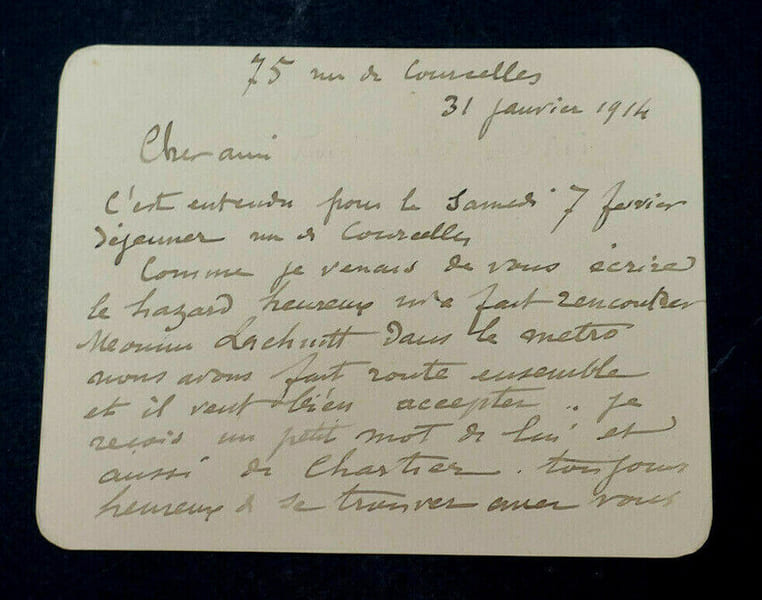 75 rue de Courcelles
31 janvier 1914
Cher ami
C'est entendu pour le Samedi 7 fevrier
déjeuner rue de Courcelles
Comme je venais de vous écrire
le hazard heureux m'a fait rencontrer
Monsieur dans le metro
nous avons fait route ensemble
et il veut bien accepter. je
reçois un petit mot de lui et
aussi de Chartier. toujours
heureux de se trouver avec vous